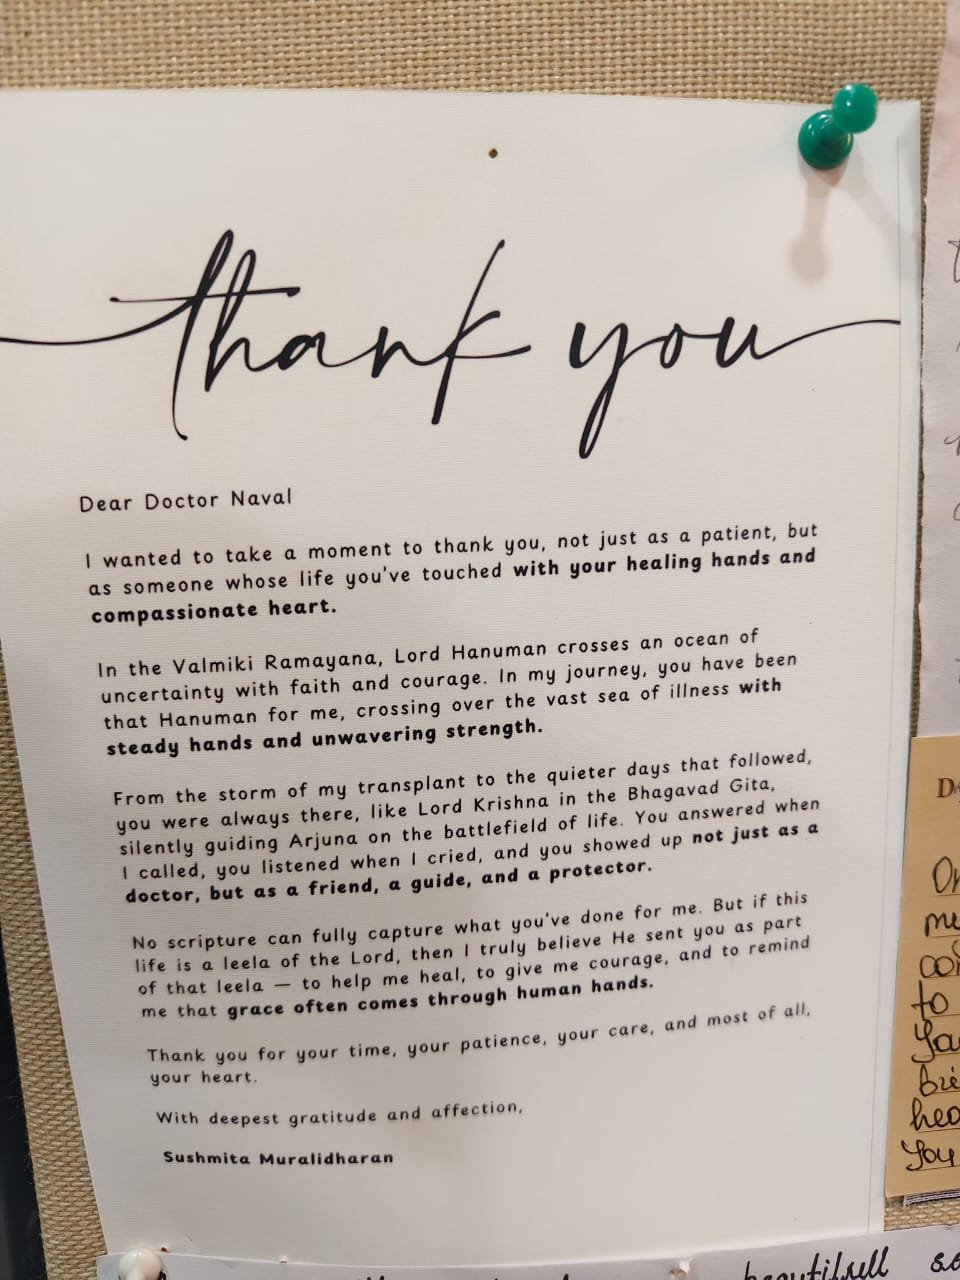 thank you
Dear Doctor Naval
I wanted to take a moment to thank you, not just as a patient, but
as someone whose life you've touched with your healing hands and
compassionate heart.
In the Valmiki Ramayana, Lord Hanuman crosses an ocean of
uncertainty with faith and courage. In my journey, you have been
that Hanuman for me, crossing over the vast sea of illness with
steady hands and unwavering strength.
From the storm of my transplant to the quieter days that followed,
you were always there, like Lord Krishna in the Bhagavad Gita,
silently guiding Arjuna on the battlefield of life. You answered when
I called, you listened when I cried, and you showed up not just as a
doctor, but as a friend, a guide, and a protector.
No scripture can fully capture what you've done for me. But if this
life is a leela of the Lord, then I truly believe He sent you as part
of that leela — to help me heal, to give me courage, and to remind
me that grace often comes through human hands.
Thank you for your time, your patience, your care, and most of all,
your heart.
With deepest gratitude and affection,
Sushmita Muralidharan
to
You